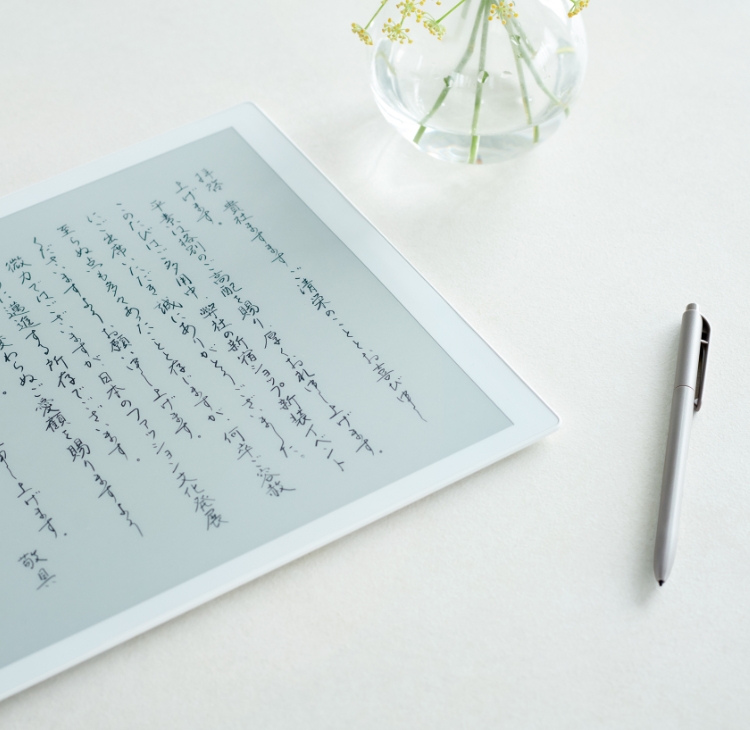 拝啓 貴社ますますご清栄のこととお喜び申し
上げます。
平素は格別のご高配を賜り厚くお礼申し上げます。
このたびはご多用中、弊社の新宿ショップ新装イベント
にご出席いただき誠にありがとうございました。
至らぬ点も多々あったことと存じますが、何卒ご容赦
くださいますようお願い申し上げます。
微力ではございますが、日本のファッション文化発展
に邁進する所存でございます。
変わらぬご愛顧を賜りますよう
申し上げます。
敬具